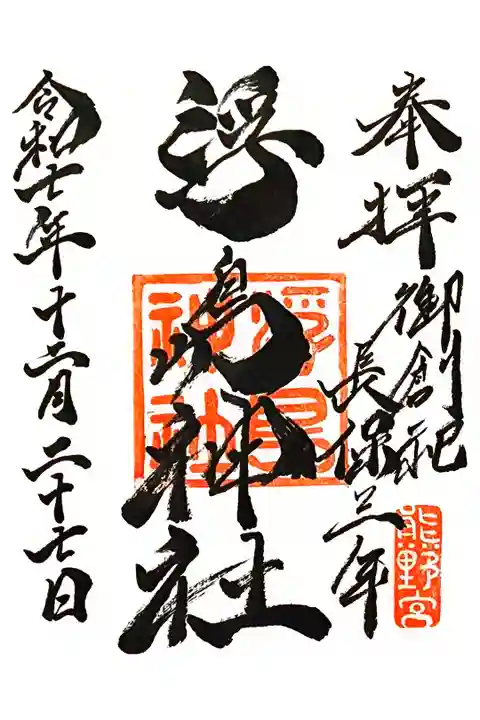 奉拝
御創祀
長保三年
熊野宮
浮嶋神社
浮島
神社
令和七年十二月二十七日